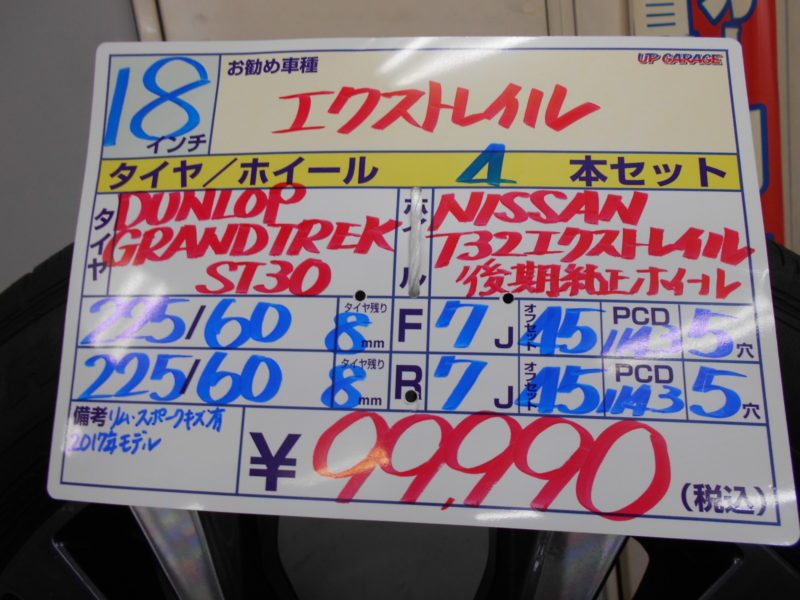 UP GARAGE
18インチ
お勧め車種
エクストレイル
タイヤ/ホイール 4 本セット
タイヤ
DUNLOP
GRANDTREK
ST30
NISSAN
T32エクストレイル
後期純正ホイール
225/60 タイヤ残り 8mm F 7J オフセット 45 PCD 114.3 5穴
225/60 タイヤ残り 8mm R 7J オフセット 45 PCD 114.3 5穴
備考 リム・スポークキズ有
2017年モデル
¥99,990 (税込)